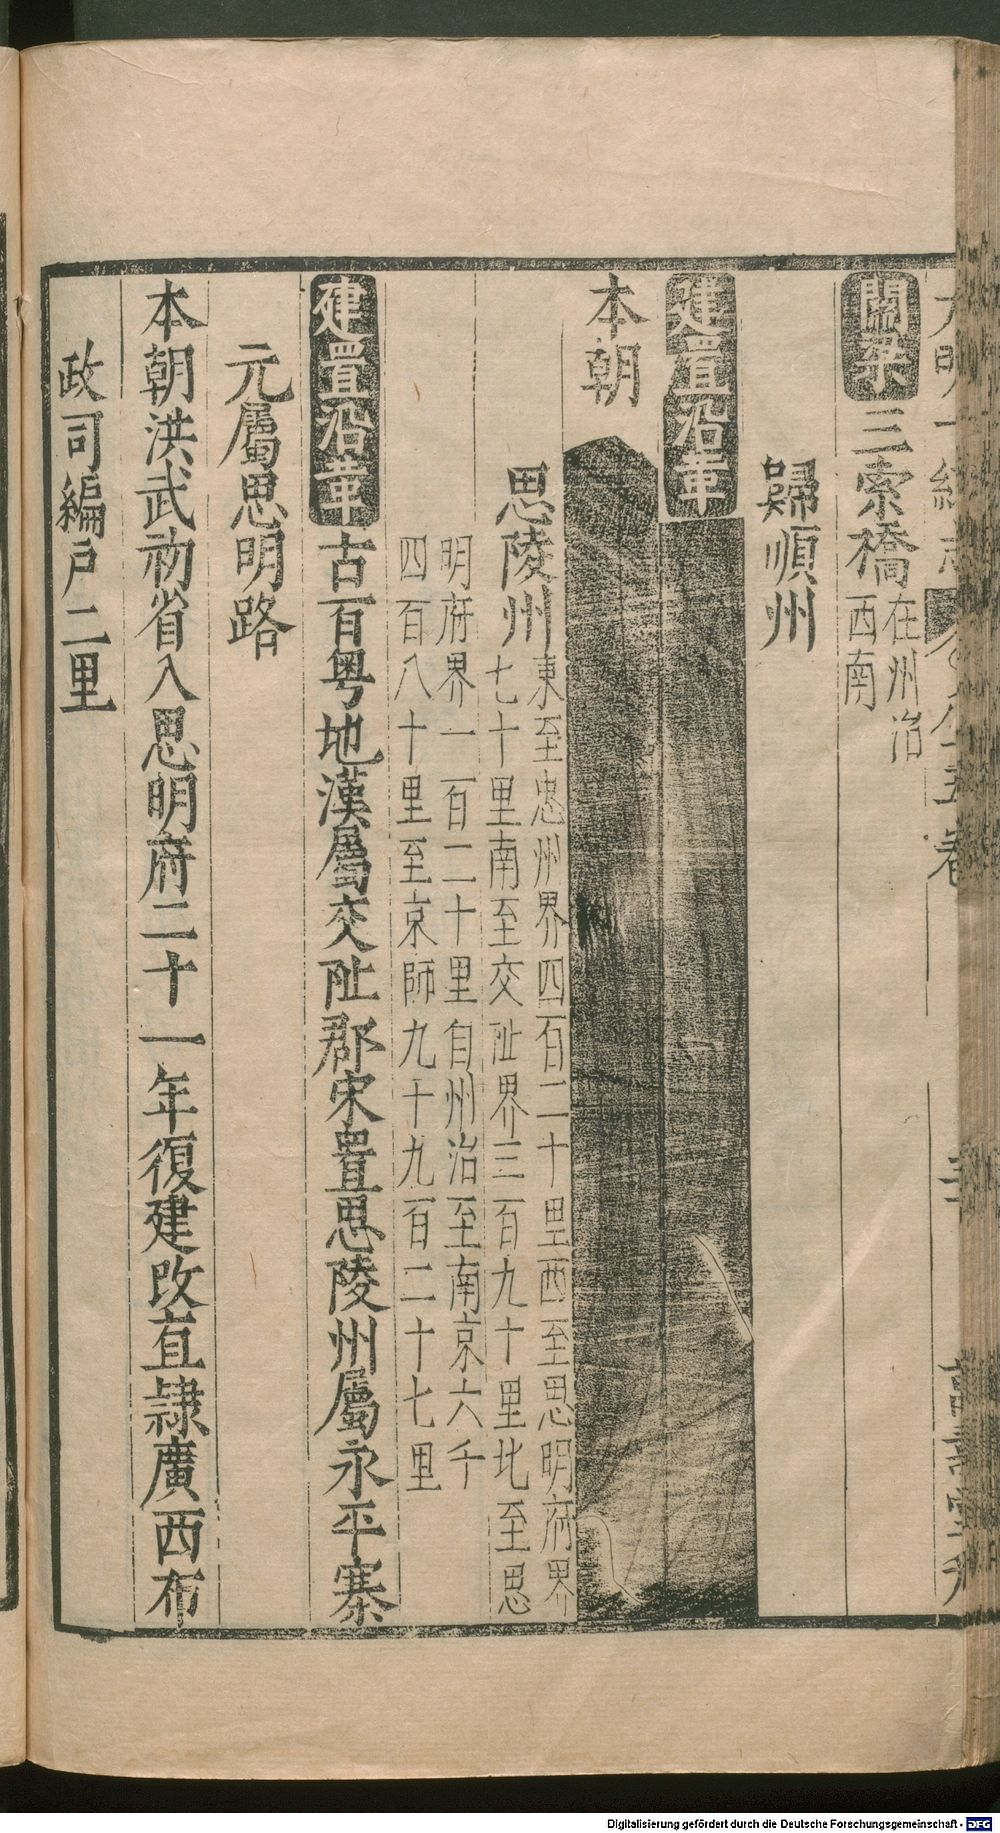 大明一統志 卷八十五卷
關梁 三索橋 在州治
西南
歸順州
建置沿革
本朝
思陵州 東至忠州界四百二十里西至思明府界
七十里南至交阯界三百九十里北至思
明府界一百二十里自州治至南京六千
四百八十里至京師九十九百二十七里
建置沿革 古百粤地漢屬交阯郡宋置思陵州屬永平寨
元屬思明路
本朝洪武初省入思明府二十一年復建改直隷廣西布
政司編戶二里
Digitalisierung gefördert durch die Deutsche Forschungsgemeinschaft - DFG